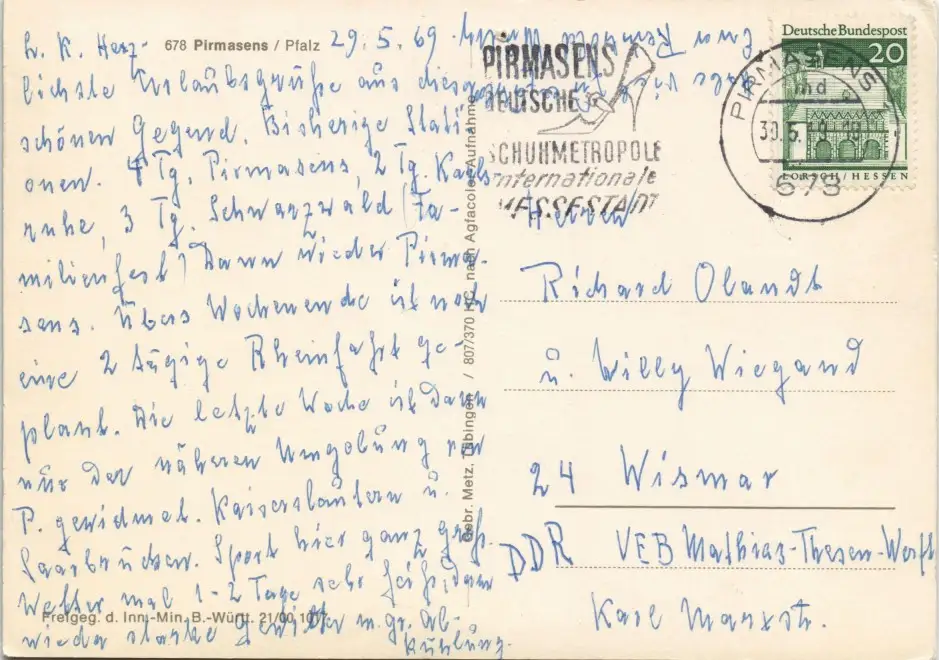 678 Pirmasens / Pfalz 29.5.69
L. K. Herz-
lichste Urlaubsgrüße aus dieser
schönen Gegend. Bisherige Stati-
onen. 4 Tg. Pirmasens, 2 Tg. Karls-
ruhe, 3 Tg. Schwarzwald (Fa-
milienfest) Dann wieder Pirma-
sens. Übers Wochenende ist noch
eine 2 tägige Rheinfahrt ge-
plant. Die letzte Woche ist dann
nur der näheren Umgebung von
P. gewidmet. Kaiserslautern u.
Saarbrücken. Sport hier ganz groß.
Wetter mal 1-2 Tage sehr heiß, dann
wieder starke Gewitter m. gr. Ab-
kühlung.
Freigeg. d. Inn.-Min. B.-Württ. 21/00 107
Gebr. Metz, Tübingen / 807/370 KC nach Agfacolor-Aufnahme
PIRMASENS
DEUTSCHE
SCHUHMETROPOLE
internationale
MESSESTADT
Deutsche Bundespost
20
LORSCH / HESSEN
PIRMASENS 1
md
678
Herren
Richard Olandt
u. Willy Wiegand
24 Wismar
DDR VEB Mathias-Thesen-Werft
Karl Marxstr.